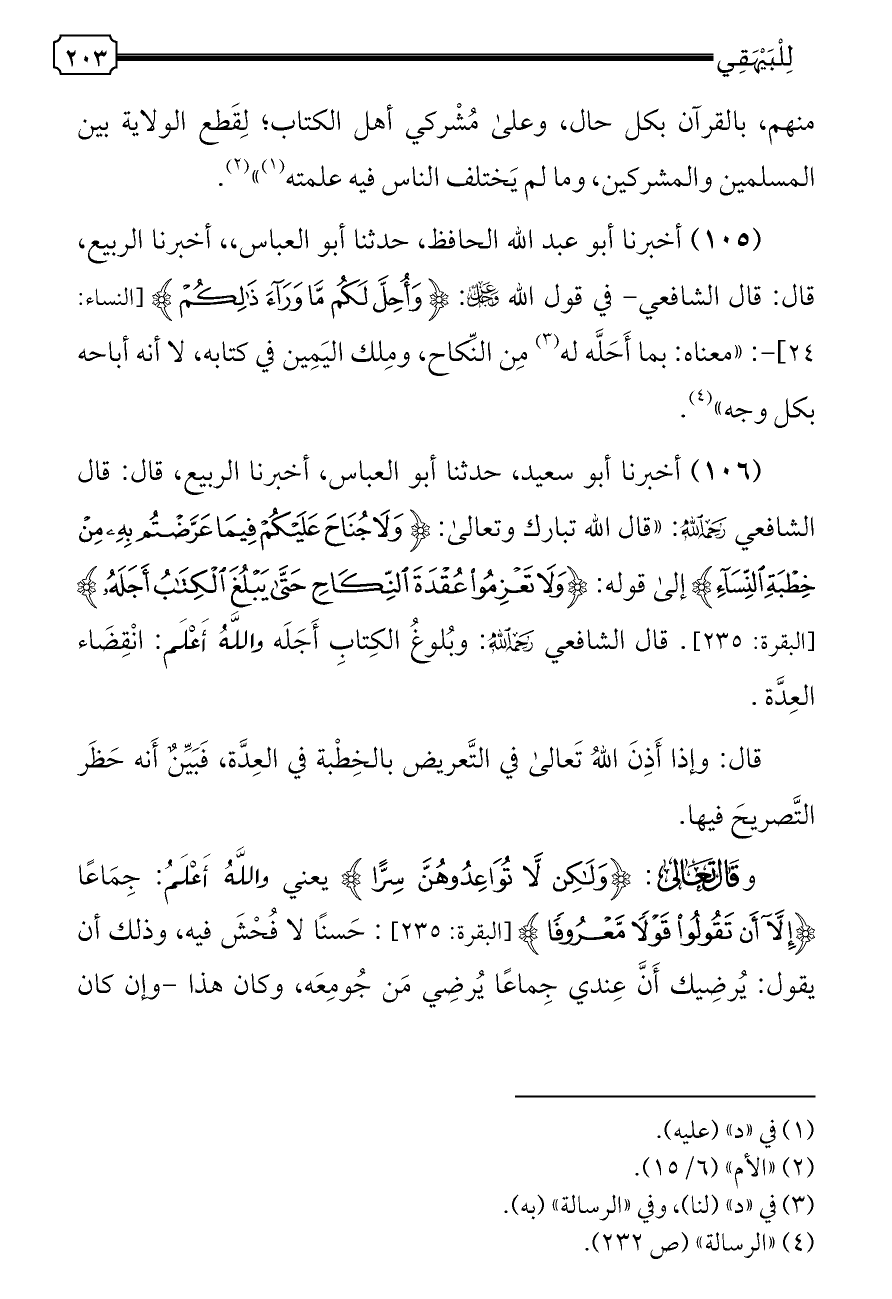 لِلْبَيْهَقِي
٢٠٣
منهم، بالقرآن بكل حال، وعلىٰ مُشْركي أهل الكتاب؛ لِقَطع الولاية بين
المسلمين والمشركين، وما لم يَختلف الناس فيه علمته(١)»(٢).
(١٠٥) أخبرنا أبو عبد الله الحافظ، حدثنا أبو العباس،، أخبرنا الربيع،
قال: قال الشافعي- في قول الله عَزَّوَجَلَّ: ﴿وَأُحِلَّ لَكُم مَّا وَرَآءَ ذَٰلِكُمْ﴾ [النساء:
٢٤]-: «معناه: بما أَحَلَّه له(٣) مِن النِّكاح، ومِلك اليَمِين في كتابه، لا أنه أباحه
بكل وجه»(٤).
(١٠٦) أخبرنا أبو سعيد، حدثنا أبو العباس، أخبرنا الربيع، قال: قال
الشافعي رَحِمَهُ اللَّهُ: «قال الله تبارك وتعالىٰ: ﴿وَلَا جُنَاحَ عَلَيْكُمْ فِيمَا عَرَّضْتُم بِهِۦ مِنْ
خِطْبَةِ ٱلنِّسَآءِ﴾ إلىٰ قوله: ﴿وَلَا تَعْزِمُوا۟ عُقْدَةَ ٱلنِّكَاحِ حَتَّىٰ يَبْلُغَ ٱلْكِتَٰبُ أَجَلَهُۥ﴾
[البقرة: ٢٣٥]. قال الشافعي رَحِمَهُ اللَّهُ: وبُلوغُ الكِتابِ أَجَلَه واللَّهُ أَعْلَم: انْقِضَاء
العِدَّة .
قال: وإذا أَذِنَ اللهُ تَعالىٰ في التَّعريض بالخِطْبة في العِدَّة، فَبَيِّنٌ أَنه حَظَر
التَّصريحَ فيها.
وقَالَ تَعَالَىٰ: ﴿وَلَٰكِن لَّا تُوَاعِدُوهُنَّ سِرًّا﴾ يعني واللَّهُ أَعْلَمُ: جِمَاعًا
﴿إِلَّآ أَن تَقُولُوا۟ قَوْلًا مَّعْرُوفًا﴾ [البقرة: ٢٣٥] : حَسنًا لا فُحْشَ فيه، وذلك أن
يقول: يُرضِيك أَنَّ عِندي جِماعًا يُرضِي مَن جُومِعَه، وكان هذا -وإن كان
(١) في «د» (عليه).
(٢) «الأم» (٦/ ١٥).
(٣) في «د» (لنا)، وفي «الرسالة» (به).
(٤) «الرسالة» (ص ٢٣٢).